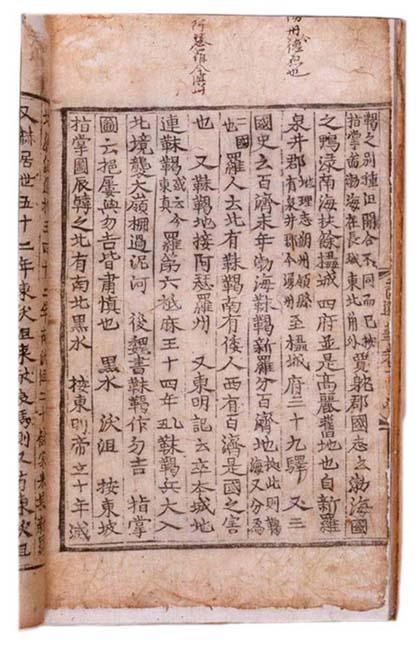 阿瑟羅今溟州
鞨之別種但開合不同而已按
指掌圖渤海在長城東北角外
賈躭郡國志云渤海國
之鴨淥南海扶餘橻城四府並是高麗舊地也自新羅
泉井郡
地理志朔州領縣
有泉井郡今湧州
至橻城府三十九驛 又三
國史云百濟末年渤海靺鞨新羅分百濟地
據此則鞨
海又分爲
二國
羅人云北有靺鞨南有倭人西有百濟是國之害
也 又靺鞨地接阿瑟羅州 又東明記云卒本城地
連靺鞨
或云今
東真
羅第六祗麻王十四年
乙丑
靺鞨兵大入
北境襲大嶺柵過泥河 後魏書靺鞨作勿吉 指掌
圖云挹屢與勿吉皆肅慎也 黑水 沃沮 按東坡
指掌圖辰韓之北有南北黑水 按東明帝立十年滅
又赫居世五十三年東沃沮來献良馬則又有東沃沮